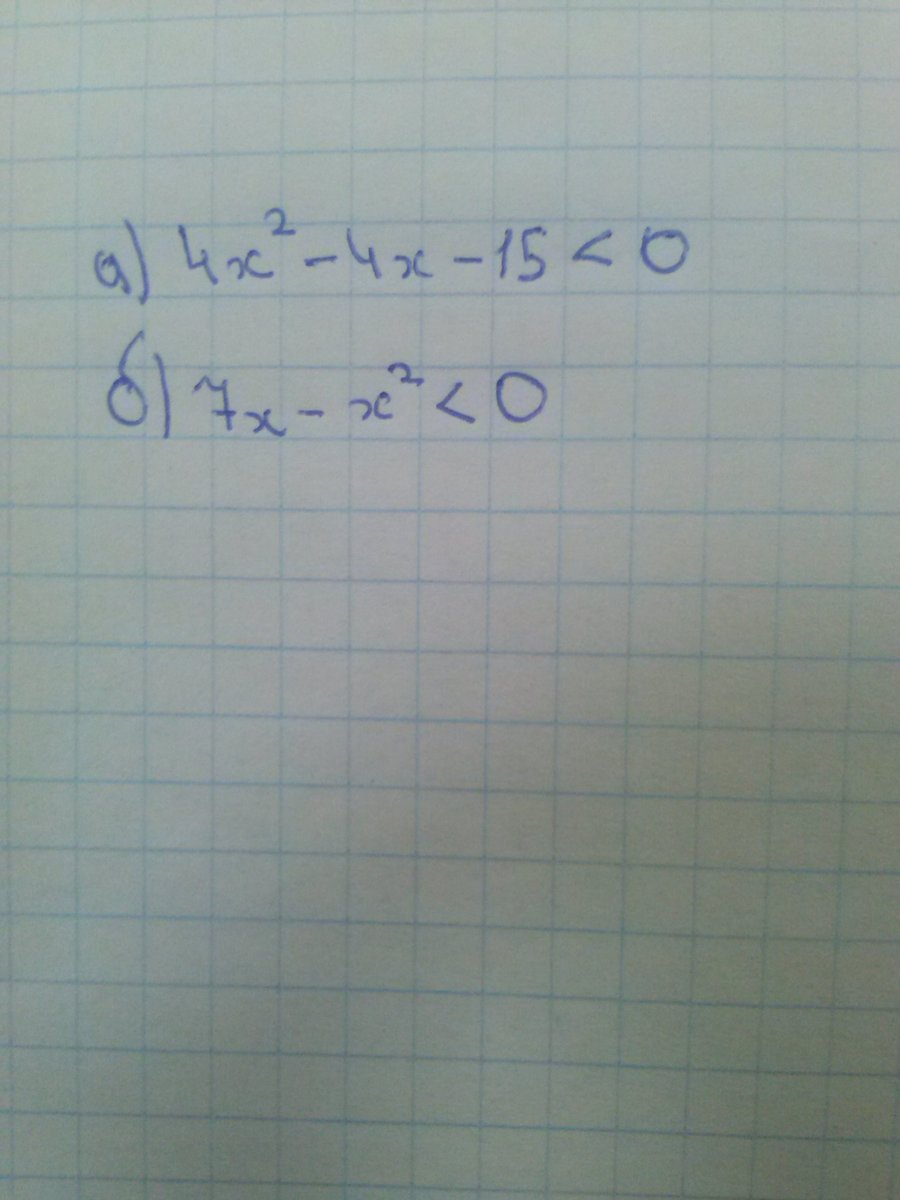 а) 4x² - 4x - 15 < 0
б) 7x - x² < 0